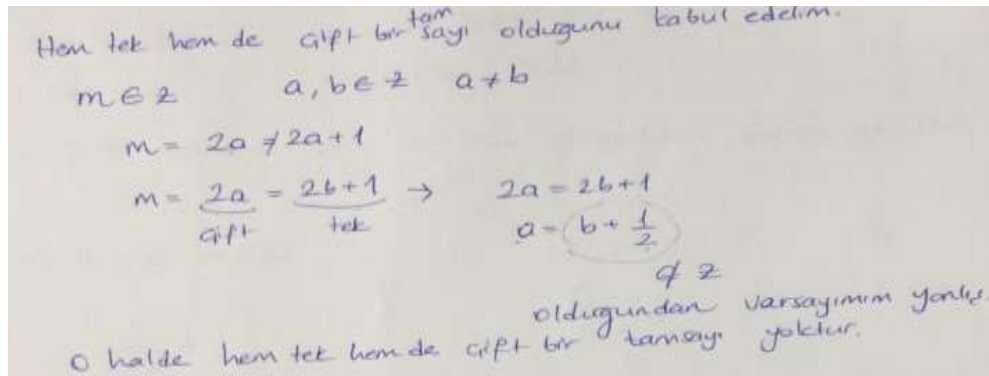 Hem tek hem de çift bir tam sayı olduğunu kabul edelim.
m ∈ Z a, b ∈ Z a ≠ b
m = 2a ≠ 2a + 1
m = 2a = 2b + 1 → 2a = 2b + 1
çift tek a = b + 1/2
∉ Z
olduğundan varsayımım yanlış.
O halde hem tek hem de çift bir tamsayı yoktur.